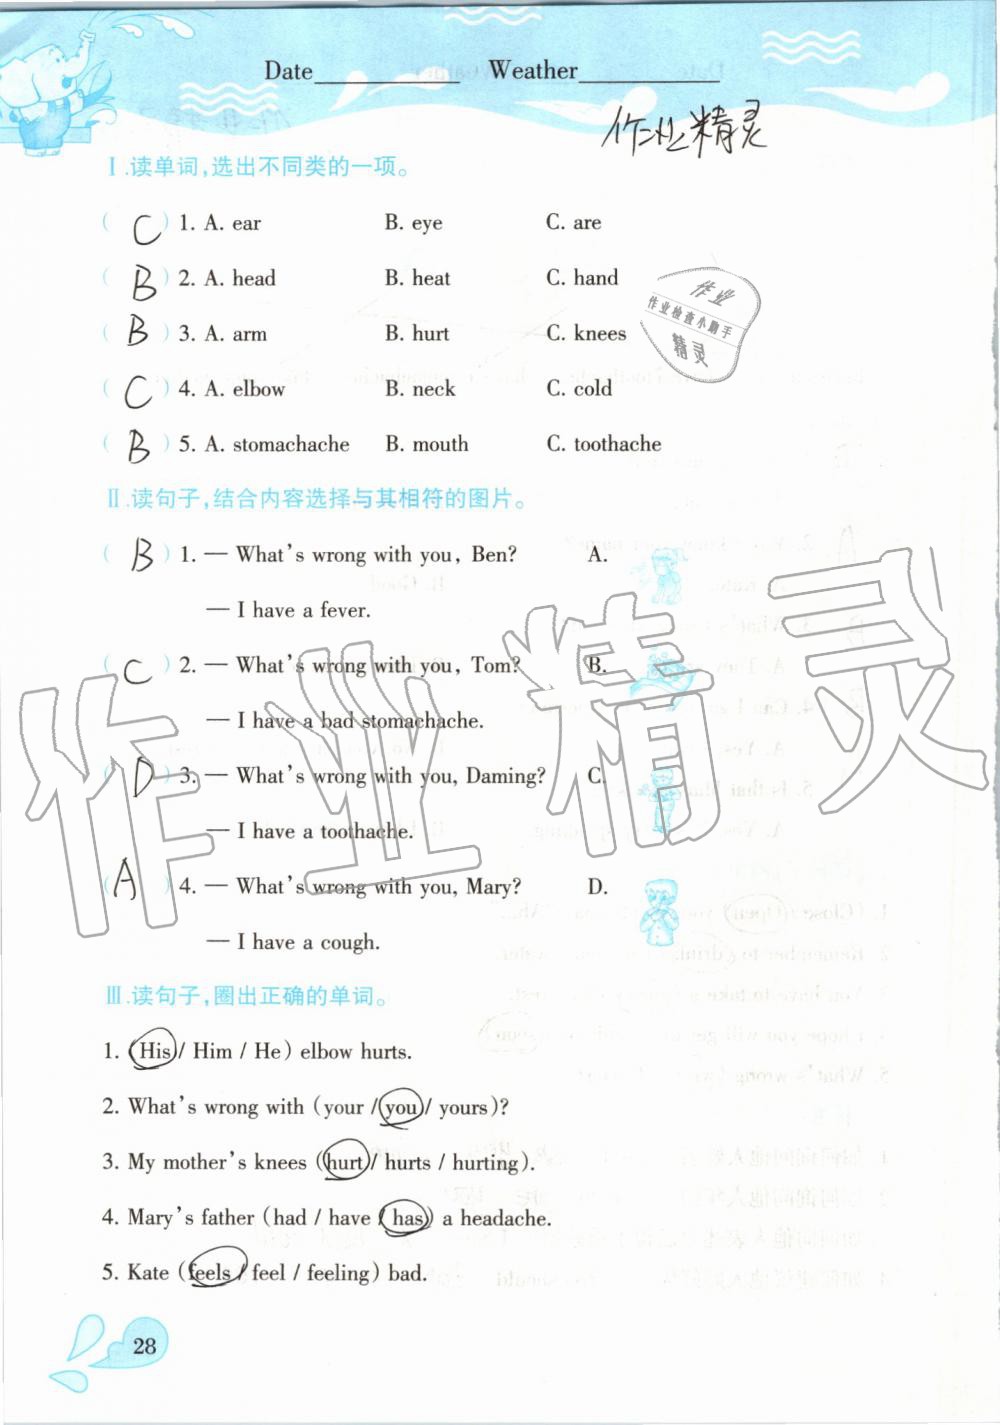 Date__________ Weather__________
作业精灵
Ⅰ.读单词,选出不同类的一项。
( C ) 1. A. ear B. eye C. are
( B ) 2. A. head B. heat C. hand
( B ) 3. A. arm B. hurt C. knees
( C ) 4. A. elbow B. neck C. cold
( B ) 5. A. stomachache B. mouth C. toothache
作业
作业检查小助手
精灵
Ⅱ.读句子,结合内容选择与其相符的图片。
( B ) 1. — What's wrong with you, Ben? A.
— I have a fever.
( C ) 2. — What's wrong with you, Tom? B.
— I have a bad stomachache.
( D ) 3. — What's wrong with you, Daming? C.
— I have a toothache.
( A ) 4. — What's wrong with you, Mary? D.
— I have a cough.
作业精灵
Ⅲ.读句子,圈出正确的单词。
1. (His / Him / He) elbow hurts.
2. What's wrong with (your / you / yours)?
3. My mother's knees (hurt / hurts / hurting).
4. Mary's father (had / have / has) a headache.
5. Kate (feels / feel / feeling) bad.
28